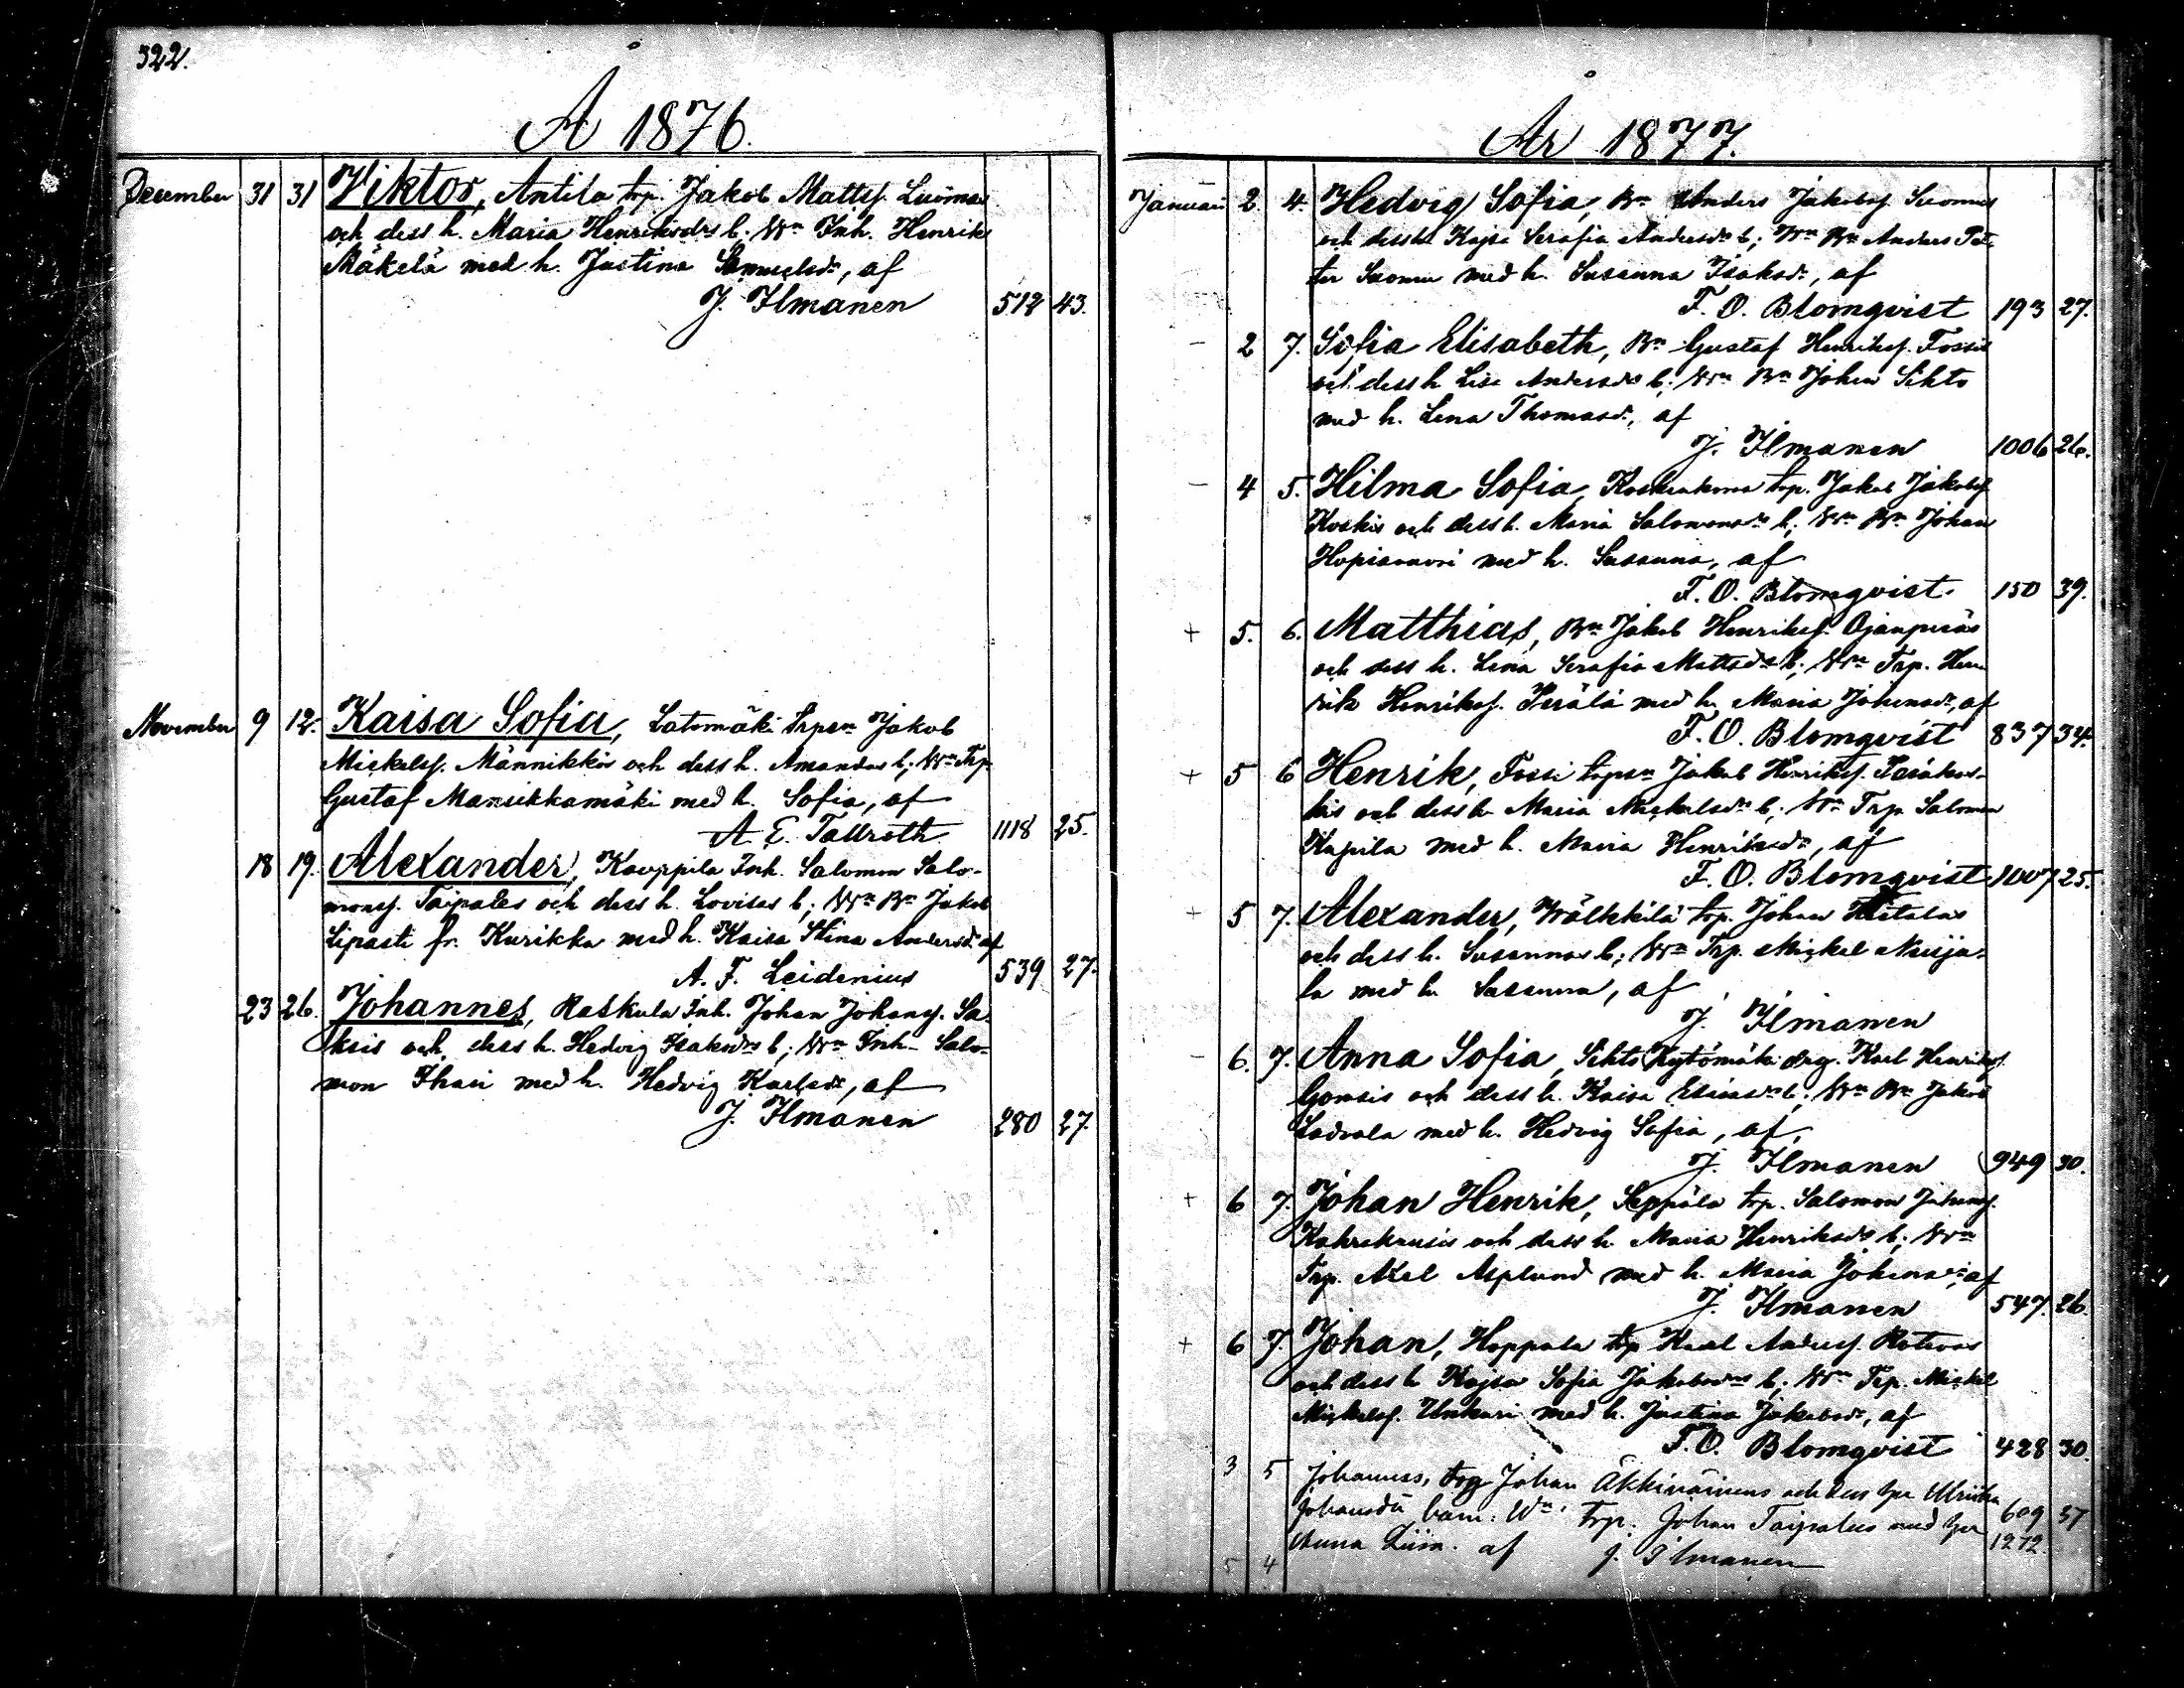 322.
Å 1876.
December 31 31 Viktor, Antila trp. Jakob Mattsf. Luomas
och dess h. Maria Henriksdrs b; Wn Inh. Henrik
Mäkelä med h. Justina Samuelsdr, af
J. Ilmanen 512 43.
November 9 12. Kaisa Sofia, Latomäki trpsn Jakob
Mickelsf. Männikkös och dess h. Amandas b; Wn Trp.
Gustaf Mansikkamäki med h. Sofia, af
A. E. Tallroth 1118 25.
18 19. Alexander, Kauppila Inh. Salomon Salo-
monsf. Taipales och dess h. Lovisas b; Wn Bn Jakob
Lipasti fr. Kurikka med h. Kaisa Stina Andersdr af
A. F. Leidenius 539 27.
23 26. Johannes, Raskula Inh. Johan Johansf. Sa-
ksis och dess h. Hedvig Isaksdrs b; Wn Inh. Salo-
mon Ihari med h. Hedvig Karlsdr, af
J. Ilmanen 280 27.
År 1877.
Januari 2 4. Hedvig Sofia, Bn Anders Jakobsf. Suomus
och dess h. Kajsa Serafia Andersdrs b; Wn Bn Anders Pet-
ter Suomu med h. Susanna Isaksdr, af
F. O. Blomqvist 193 27.
— 2 7. Sofia Elisabeth, Bn Gustaf Henriksf. Fossis
och dess h. Lisa Andersdrs b; Wn Bn Johan Sihto
med h. Lena Thomasdr, af
J. Ilmanen 1006 26.
— 4 5. Hilma Sofia, trp. Jakob Jakobsf.
Koskis och dess h. Maria Salomonsdrs b; Wn Bn Johan
Hopiavuori med h. Susanna, af
F. O. Blomqvist. 150 39.
+ 5. 6. Matthias, Bn Jakob Henriksf. Ojanperäs
och dess h. Lena Serafia Mattsdrs b; Wn Trp. Hen-
rik Henriksf. Perälä med h. Maria Johansdr, af
F. O. Blomqvist 837 34.
+ 5 6 Henrik, Fossi trpsn Jakob Henriksf.
kis och dess h. Maria Mickelsdrs b; Wn Trp. Salomon
Kapila med h. Maria Henriksdr, af
F. O. Blomqvist 1007 25.
+ 5 7. Alexander, Wälkkilä trp. Johan Hietalas
och dess h. Susannas b; Wn Trp. Mickel Neuja-
la med h. Susanna, af
J. Ilmanen
— 6. 7. Anna Sofia, Sihto Kytömäki drg. Karl Henriksf.
Gonsis och dess h. Kaisa Eliasdrs b; Wn Bn Jakob
Ladvala med h. Hedvig Sofia, af,
J. Ilmanen 949 30.
+ 6 7. Johan Henrik, Seppälä trp. Salomon Johansf.
och dess h. Maria Henriksdrs b; Wn
Trp. Axel Asplund med h. Maria Johansdr, af
J. Ilmanen 547. 26.
+ 6 7. Johan, Hoppala trp Karl Andersf. Rotivas
och dess h. Kajsa Sofia Jakobsdrs b; Wn Trp. Mickel
Mickelsf. Unkuri med h. Justina Jakobsdr, af
F. O. Blomqvist 428 30.
3 5 Johannes, trp Johan Äkkinäinens och dess hu Ulrika
Johansdrs barn. Wn: trp. Johan Taipalus med hu 609 37
Anna Liisa. af J. Ilmanen 1272.
5 4